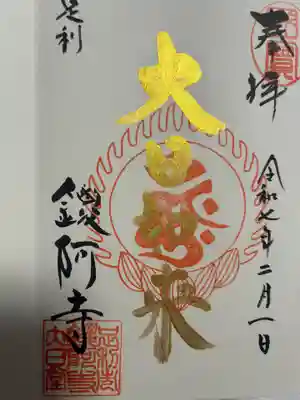 奉拝
令和七年二月一日
大日如来
足利
鑁阿寺